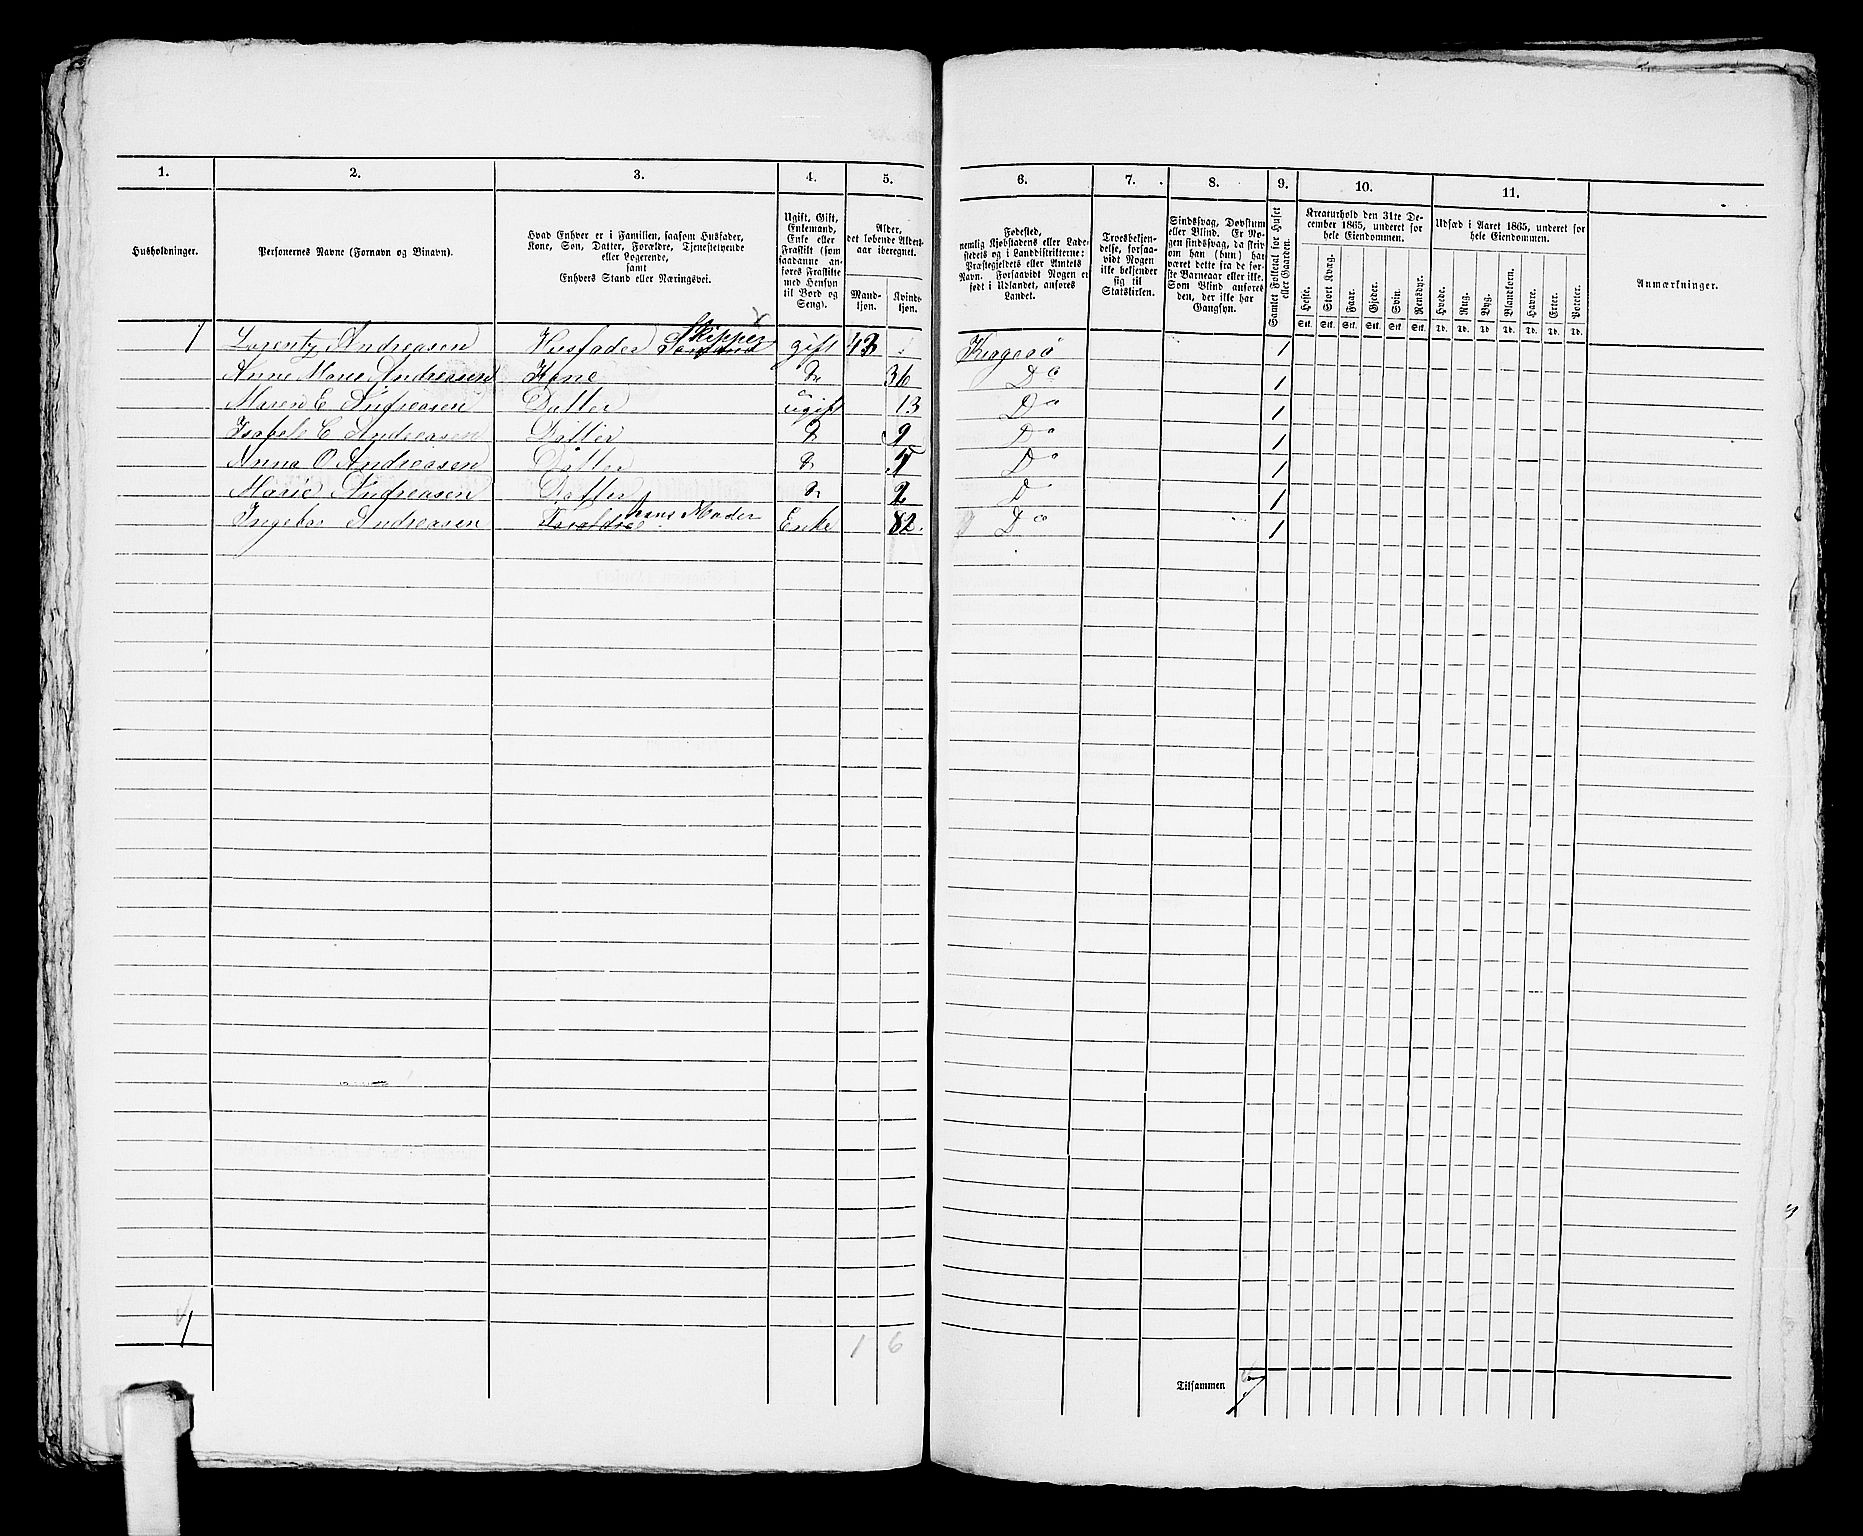 1. 2. 3. 4. 5. 6. 7. 8. 9. 10. 11.
Husholdninger.
Personernes Navne (Fornavn og Binavn).
Hvad Enhver er i Familien, saasom Husfader,
Kone, Søn, Datter, Forældre, Tjenestetyende
eller Logerende,
samt
Enhvers Stand eller Næringsvei.
Ugift, Gift,
Enkemand,
Enke eller
Fraskilt (som
saadanne anføres
Fraskilte
med Hensyn
til Bord og
Seng).
Alder,
det løbende Aldersaar
iberegnet.
Mandkjøn.
Kvindekjøn.
Fødested,
nemlig Kjøbstadens eller Ladestedets
og i Landdistrikterne:
Præstegjeldets eller Amtets
Navn. Forsaavidt Nogen er
født i Udlandet, anføres
Landet.
Troesbekjendelse,
forsaavidt
Nogen
ikke bekjender
sig til
Statskirken.
Sindssvag, Døvstum
eller Blind. Er Nogen
sindssvag, da skrives
om han (hun) har
været dette fra de første
Barneaar eller ikke.
Som Blind anføres
den, der ikke har
Gangsyn.
Samlet Folketal for Huset
eller Gaarden.
Kreaturhold den 31te December
1865, underet for
hele Eiendommen.
Heste. Stort Kvæg. Faar. Gjeder. Svin. Rensdyr.
Stk. Stk. Stk. Stk. Stk. Stk.
Udsæd i Aaret 1865, underet for
hele Eiendommen.
Hvede. Rug. Byg. Blandkorn. Havre. Erter. Poteter.
Td. Td. Td. Td. Td. Td. Td.
Anmærkninger.
1 Lorentz Andreasen Husfader Skipper gift 43 1
Anne Marie Andreasen Kone Do 36 Do 1
Maren E Andreasen Datter ugift 13 Do 1
Isabele E Andreasen Datter D 9 Do 1
Anna O Andreasen Datter Do 5 Do 1
Marie Andreasen Datter Do 2 D 1
Ingebor Andreasen Forældre hans Moder Enke 82 Do 1
1 1 6
Tilsammen 7